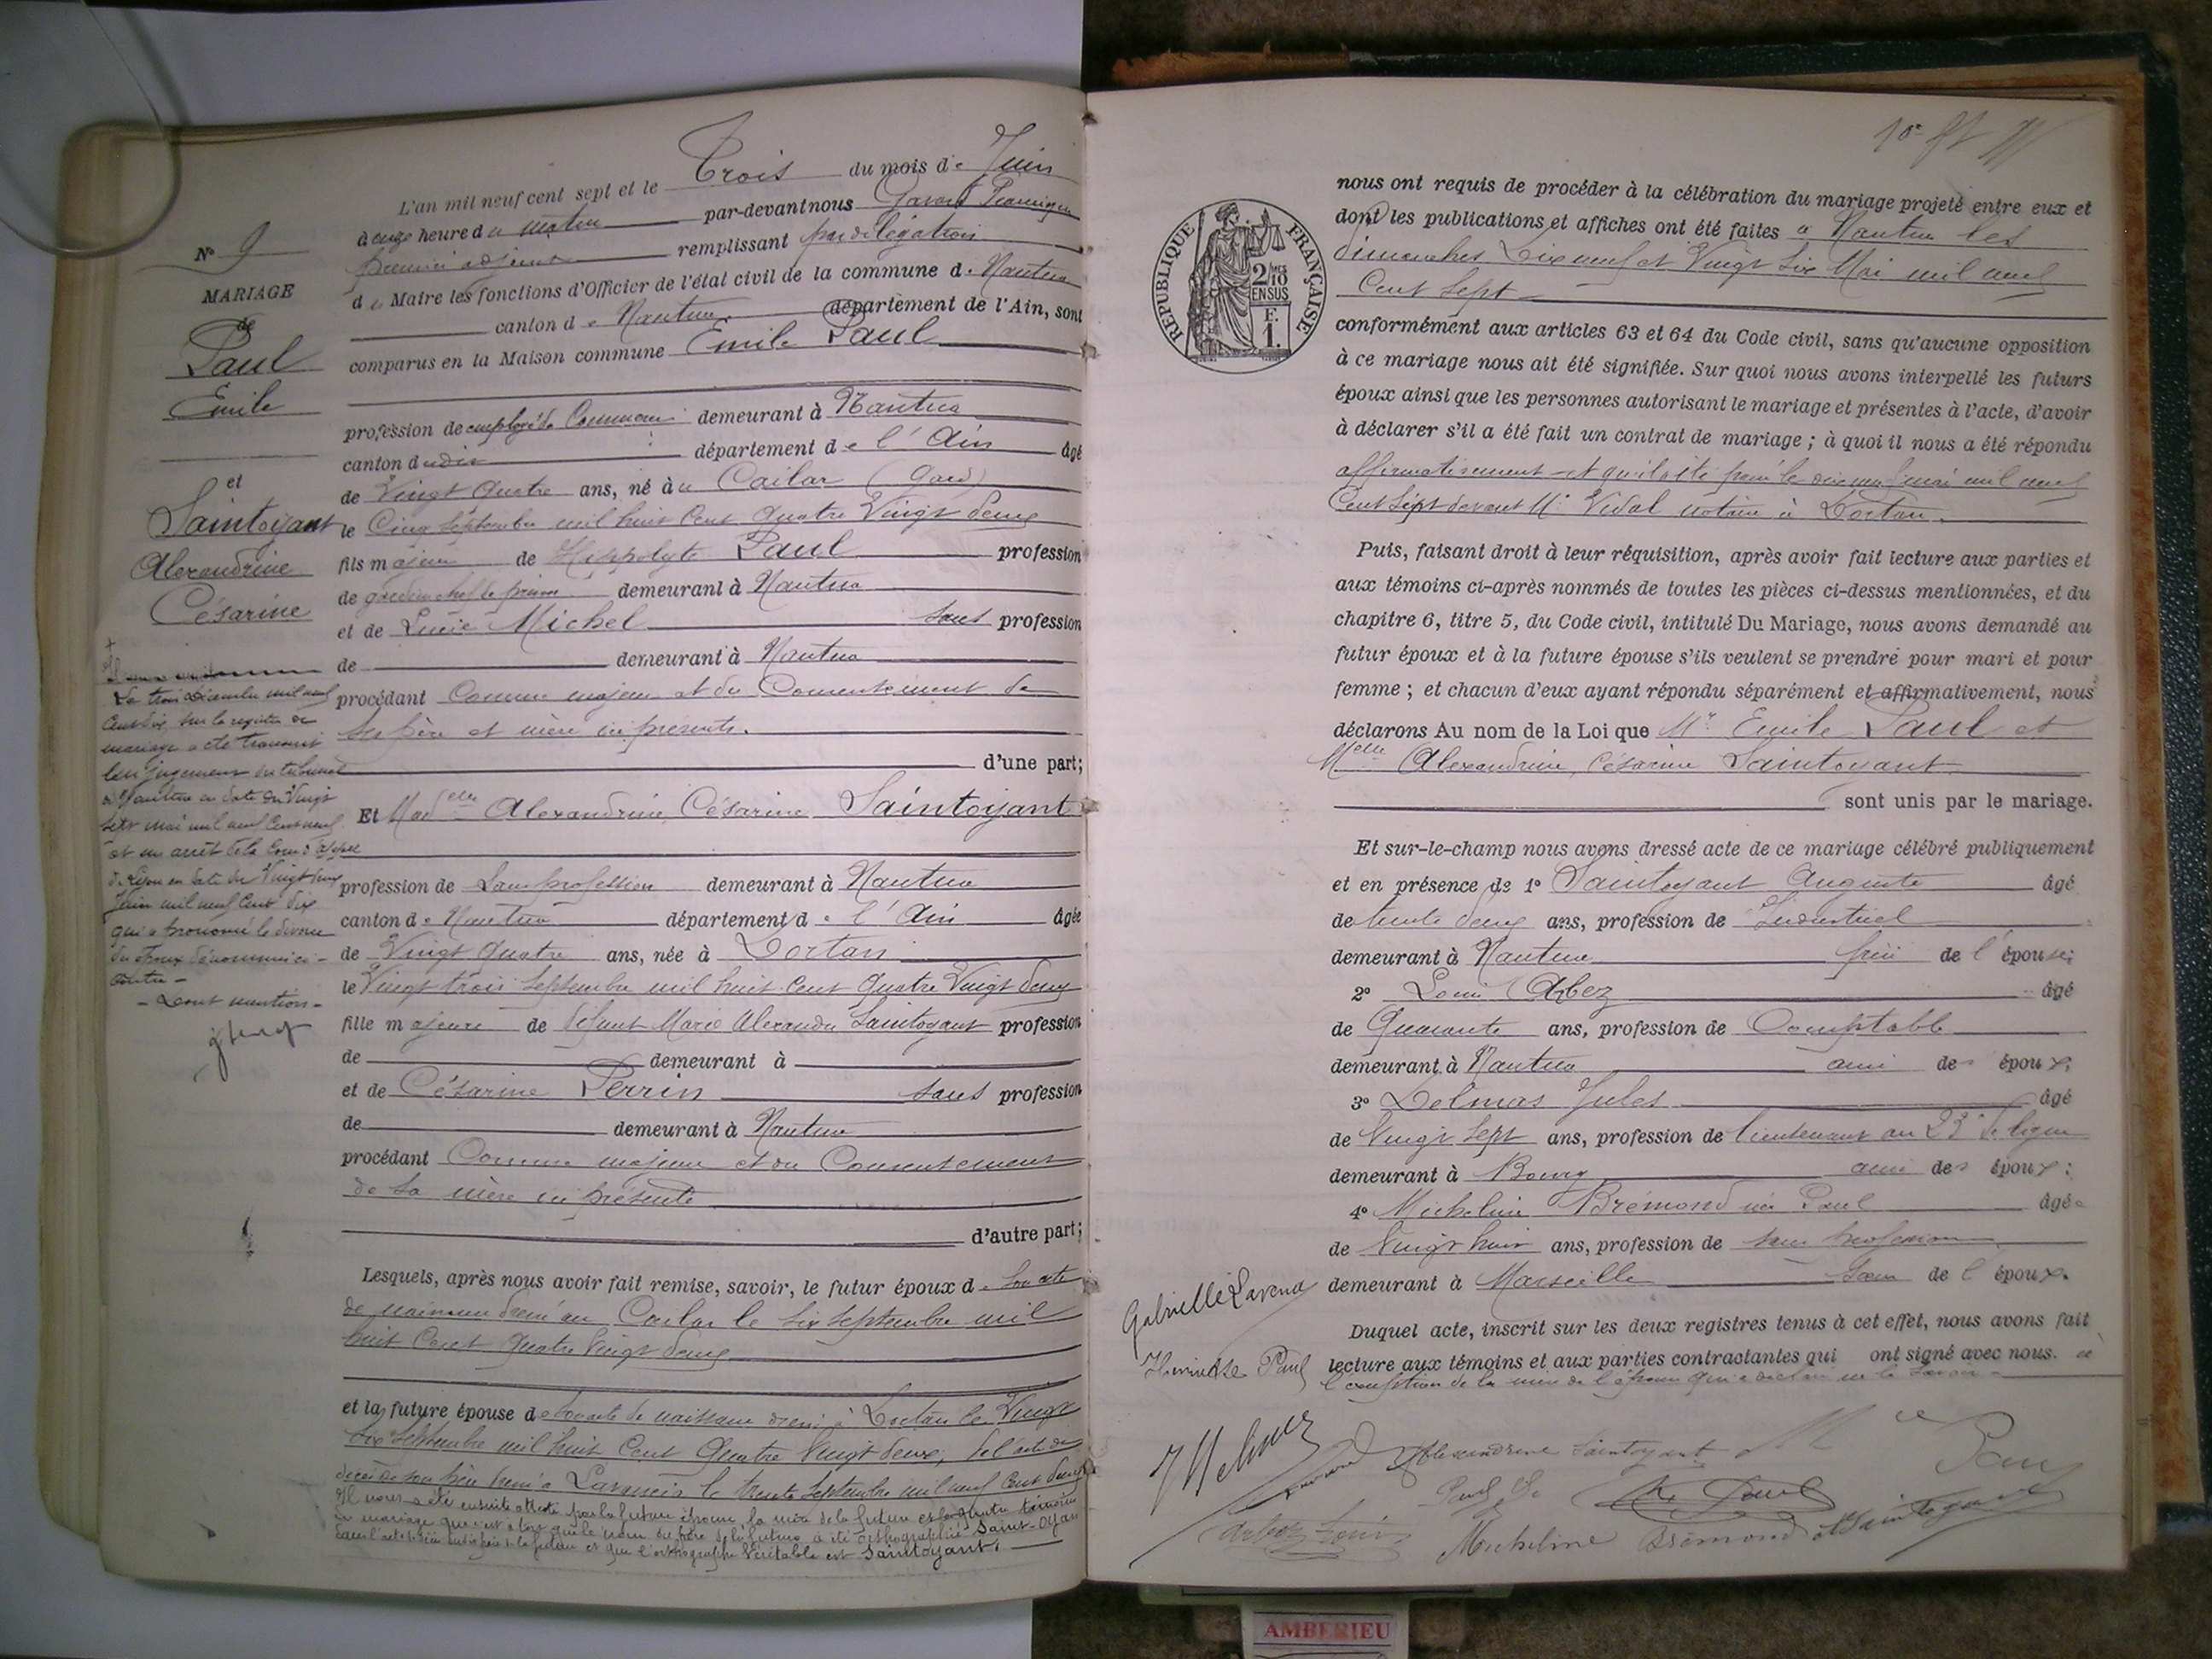 L'an mil neuf cent sept et le Trois du mois de Juin
à onze heure du matin par-devant nous Gavard
premier adjoint remplissant par délégation
du Maire les fonctions d'Officier de l'état civil de la commune de Nantua
canton de Nantua département de l'Ain, sont
comparus en la Maison commune Emile Paul
profession de employé de Commerce demeurant à Nantua
canton dudit département de l'Ain âgé
de Vingt quatre ans, né au Cailar (Gard)
le Cinq Septembre mil huit Cent quatre Vingt deux
fils majeur de Hippolyte Paul profession
de gardien chef de prison demeurant à Nantua
et de Lucie Michel sans profession
de demeurant à Nantua
procédant Comme majeur et du Consentement de
ses père et mère ici présents.
d'une part;
Et Mad elle Alexandrine Césarine Saintoyant
profession de Sans profession demeurant à Nantua
canton de Nantua département de l'Ain âgée
de Vingt quatre ans, née à Dortan
le Vingt trois Septembre mil huit cent quatre Vingt deux
fille majeure de défunt Marie Alexandre Saintoyant profession
de demeurant à
et de Césarine Perrin sans profession
de demeurant à Nantua
procédant Comme majeure et du Consentement
de sa mère ici présente
d'autre part;
Lesquels, après nous avoir fait remise, savoir, le futur époux de Son acte
de naissance dressé au Cailar le six Septembre mil
huit Cent quatre Vingt deux
et la future épouse de son acte de naissance dressé à Dortan le Vingt
six Septembre mil huit Cent quatre Vingt deux, de l'acte de
décès de son père dressé à le trente Septembre mil neuf Cent deux
Il nous a été ensuite attesté par la future épouse, la mère de la future et les quatre témoins
du mariage que c'est à tort que le nom du père de la future a été orthographié Saint-Oyan
dans l'acte de de la future et que l'orthographe Véritable est Saintoyant.
N° 9
MARIAGE
de
Paul
Emile
et
Saintoyant
Alexandrine
Césarine
Le trois Décembre mil neuf
Cent dix, sur le registre de
mariage a été transcrit
un jugement du tribunal
de Nantua en date du Vingt
sept mai mil neuf Cent neuf
et un arrêt de la Cour d'appel
de Lyon en date du Vingt deux
Juin mil neuf Cent dix
qui a prononcé le divorce
des époux dénommés ci-
contre -
- Dont mention -
nous ont requis de procéder à la célébration du mariage projeté entre eux et
dont les publications et affiches ont été faites à Nantua les
dimanches Dix neuf et Vingt Six Mai mil neuf
Cent Sept
RÉPUBLIQUE FRANÇAISE
2/10
EN SUS
F.
1.
conformément aux articles 63 et 64 du Code civil, sans qu'aucune opposition
à ce mariage nous ait été signifiée. Sur quoi nous avons interpellé les futurs
époux ainsi que les personnes autorisant le mariage et présentes à l'acte, d'avoir
à déclarer s'il a été fait un contrat de mariage ; à quoi il nous a été répondu
affirmativement et qu'il a été passé le mai mil neuf
Cent Sept devant Me Vidal notaire à Dortan.
Puis, faisant droit à leur réquisition, après avoir fait lecture aux parties et
aux témoins ci-après nommés de toutes les pièces ci-dessus mentionnées, et du
chapitre 6, titre 5, du Code civil, intitulé Du Mariage, nous avons demandé au
futur époux et à la future épouse s'ils veulent se prendre pour mari et pour
femme ; et chacun d'eux ayant répondu séparément et affirmativement, nous
déclarons Au nom de la Loi que Mr Emile Paul et
Melle Alexandrine, Césarine Saintoyant
sont unis par le mariage.
Et sur-le-champ nous avons dressé acte de ce mariage célébré publiquement
et en présence de 1° Saintoyant Auguste âgé
de trente deux ans, profession de Industriel
demeurant à Nantua frère de l'épouse;
2° Louis Arbez âgé
de Quarante ans, profession de Comptable
demeurant à Nantua ami des époux;
3° Delmas Jules âgé
de Vingt Sept ans, profession de lieutenant au 23e de ligne
demeurant à Bourg ami des époux;
4° Micheline Brémond née Paul âgée
de Vingt huit ans, profession de sans profession
demeurant à Marseille sœur de l'époux.
Duquel acte, inscrit sur les deux registres tenus à cet effet, nous avons fait
lecture aux témoins et aux parties contractantes qui ont signé avec nous. à
l'exception de la mère de l'époux qui a déclaré ne le savoir
Gabrielle
Paul
JDelmas
Alexandrine Saintoyant
Paul
Paul E
Paul
Arbez Louis
Micheline Brémond
A Saintoyant
AMBERIEU